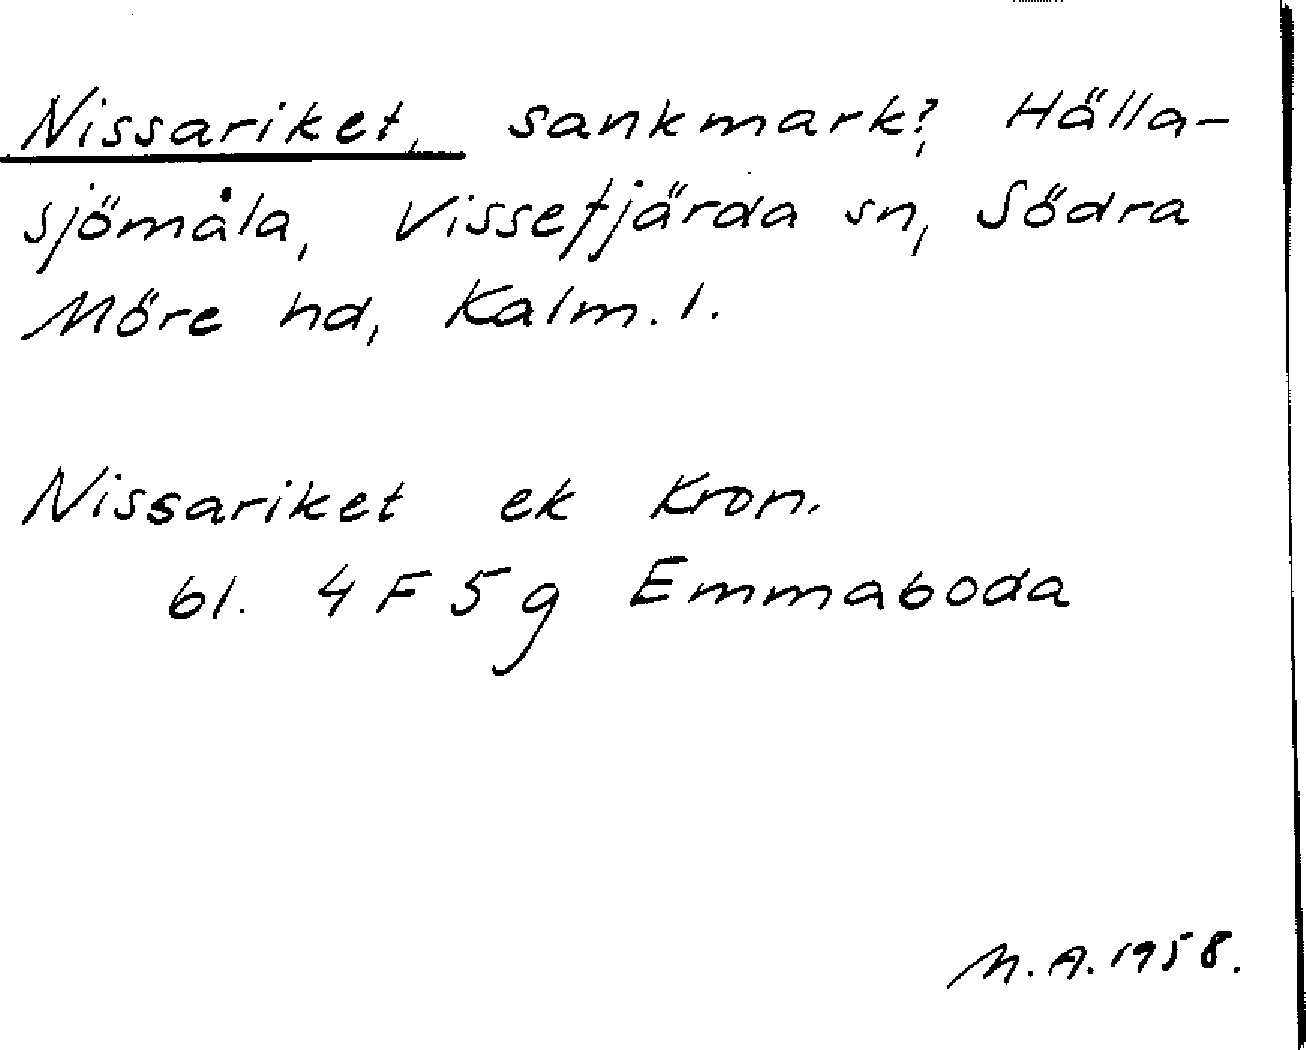 Nissariket, sankmark?, Hälla-
sjömåla, Vissefjärda sn, Södra
Möre hd, Kalm. l.
Nissariket ek Kron.
bl. 4 F 5 g Emmaboda
M. A. 1958.